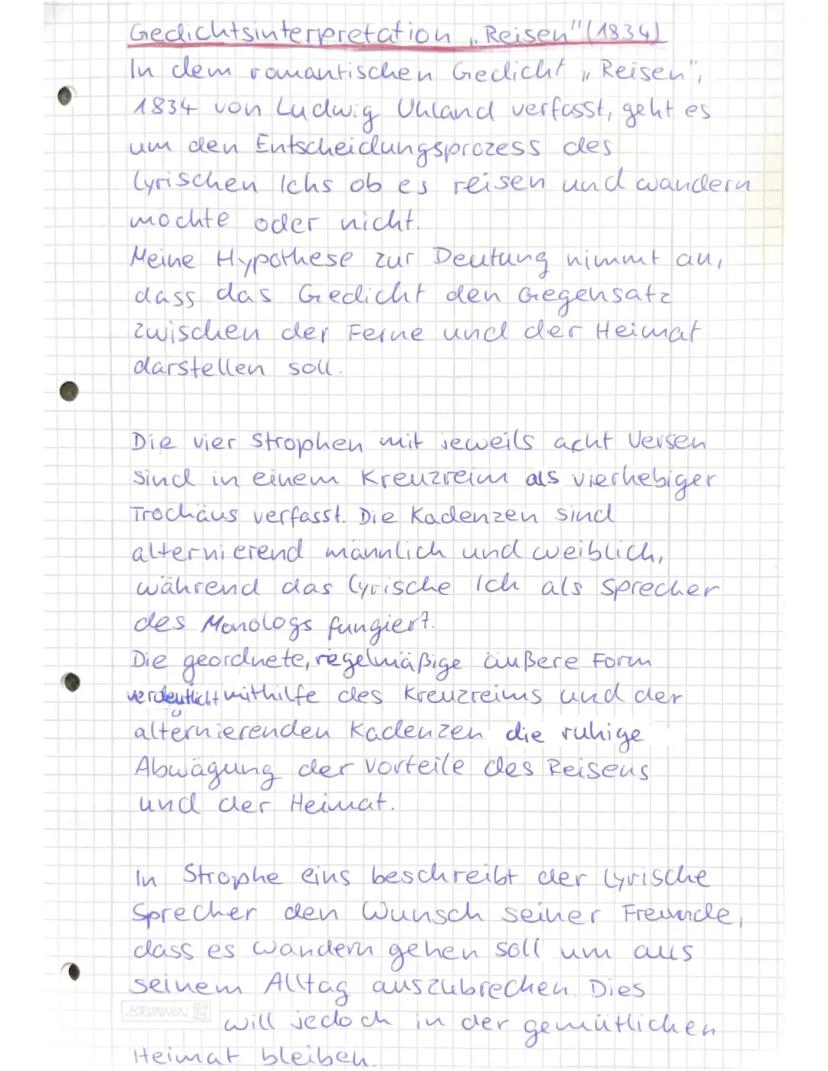 Gedichtsinterpretation „Reisen" (1834)
In dem romantischen Gedicht „Reisen",
1834 von Ludwig Uhland verfasst, geht es
um den Entscheidungsprozess des
lyrischen Ichs ob es reisen und wandern
mochte oder nicht.
Meine Hypothese zur Deutung nimmt an,
dass das Gedicht den Gegensatz
zwischen der Ferne und der Heimat
darstellen soll.
Die vier Strophen mit jeweils acht Versen
sind in einem Kreuzreim als vierhebiger
Trochäus verfasst. Die Kadenzen sind
alternierend männlich und weiblich,
während das lyrische Ich als Sprecher
des Monologs fungiert.
Die geordnete, regelmäßige äußere Form
verdeutlicht mithilfe des Kreuzreims und der
alternierenden Kadenzen die ruhige
Abwägung der Vorteile des Reisens
und der Heimat.
In Strophe eins beschreibt der lyrische
Sprecher den Wunsch seiner Freunde,
dass es wandern gehen soll um aus
seinem Alltag auszubrechen. Dies
BRUNNEN
will jedoch in der gemütlichen
Heimat bleiben.